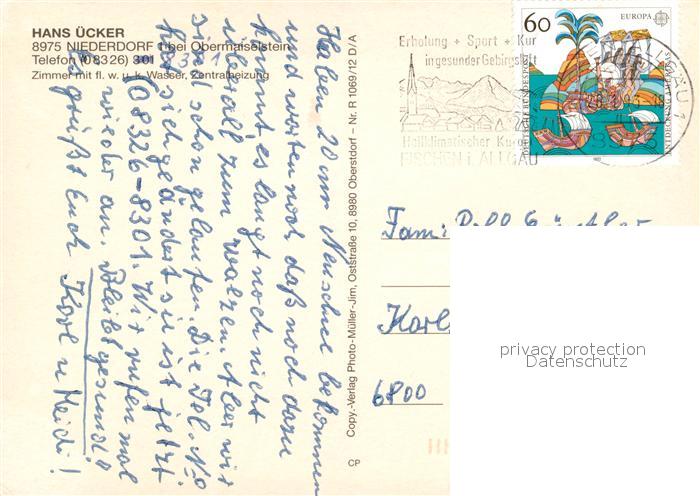 HANS ÜCKER
8975 NIEDERDORF 1 bei Obermaiselstein
Telefon (08326) 301
Zimmer mit fl. w. u. k. Wasser, Zentralheizung
Haben 20 cm Neuschnee bekommen
und warten noch daß noch dazu
kommt es langt noch nicht
überall zum walzen. Aber wir
sind schon gelaufen. Die Tel. No
hat sich geändert sie ist jetzt
(08326-8301. Wir rufen mal
wieder an. Bleibt gesund!
Es grüßt Euch Karl u Heidi!
Copy.-Verlag Photo-Müller-Jim, Oststraße 10, 8980 Oberstdorf – Nr. R 1069/12 D/A
CP
Erholung + Sport + Kur
in gesunder Gebirgsluft
Heilklimatischer Kurort
FISCHEN i. ALLGÄU
60
EUROPA
DEUTSCHE BUNDESPOST
Fam:
6800
privacy protection
Datenschutz